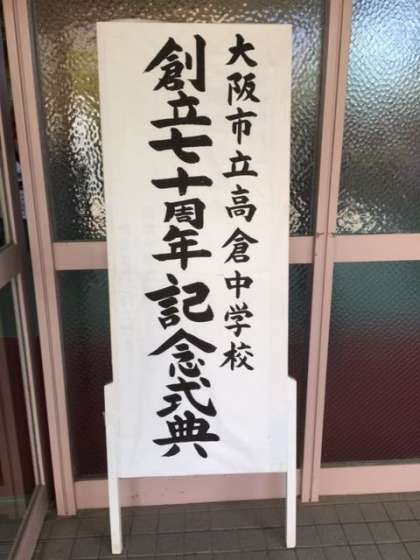 大阪市立高倉中学校
創立七十周年記念式典